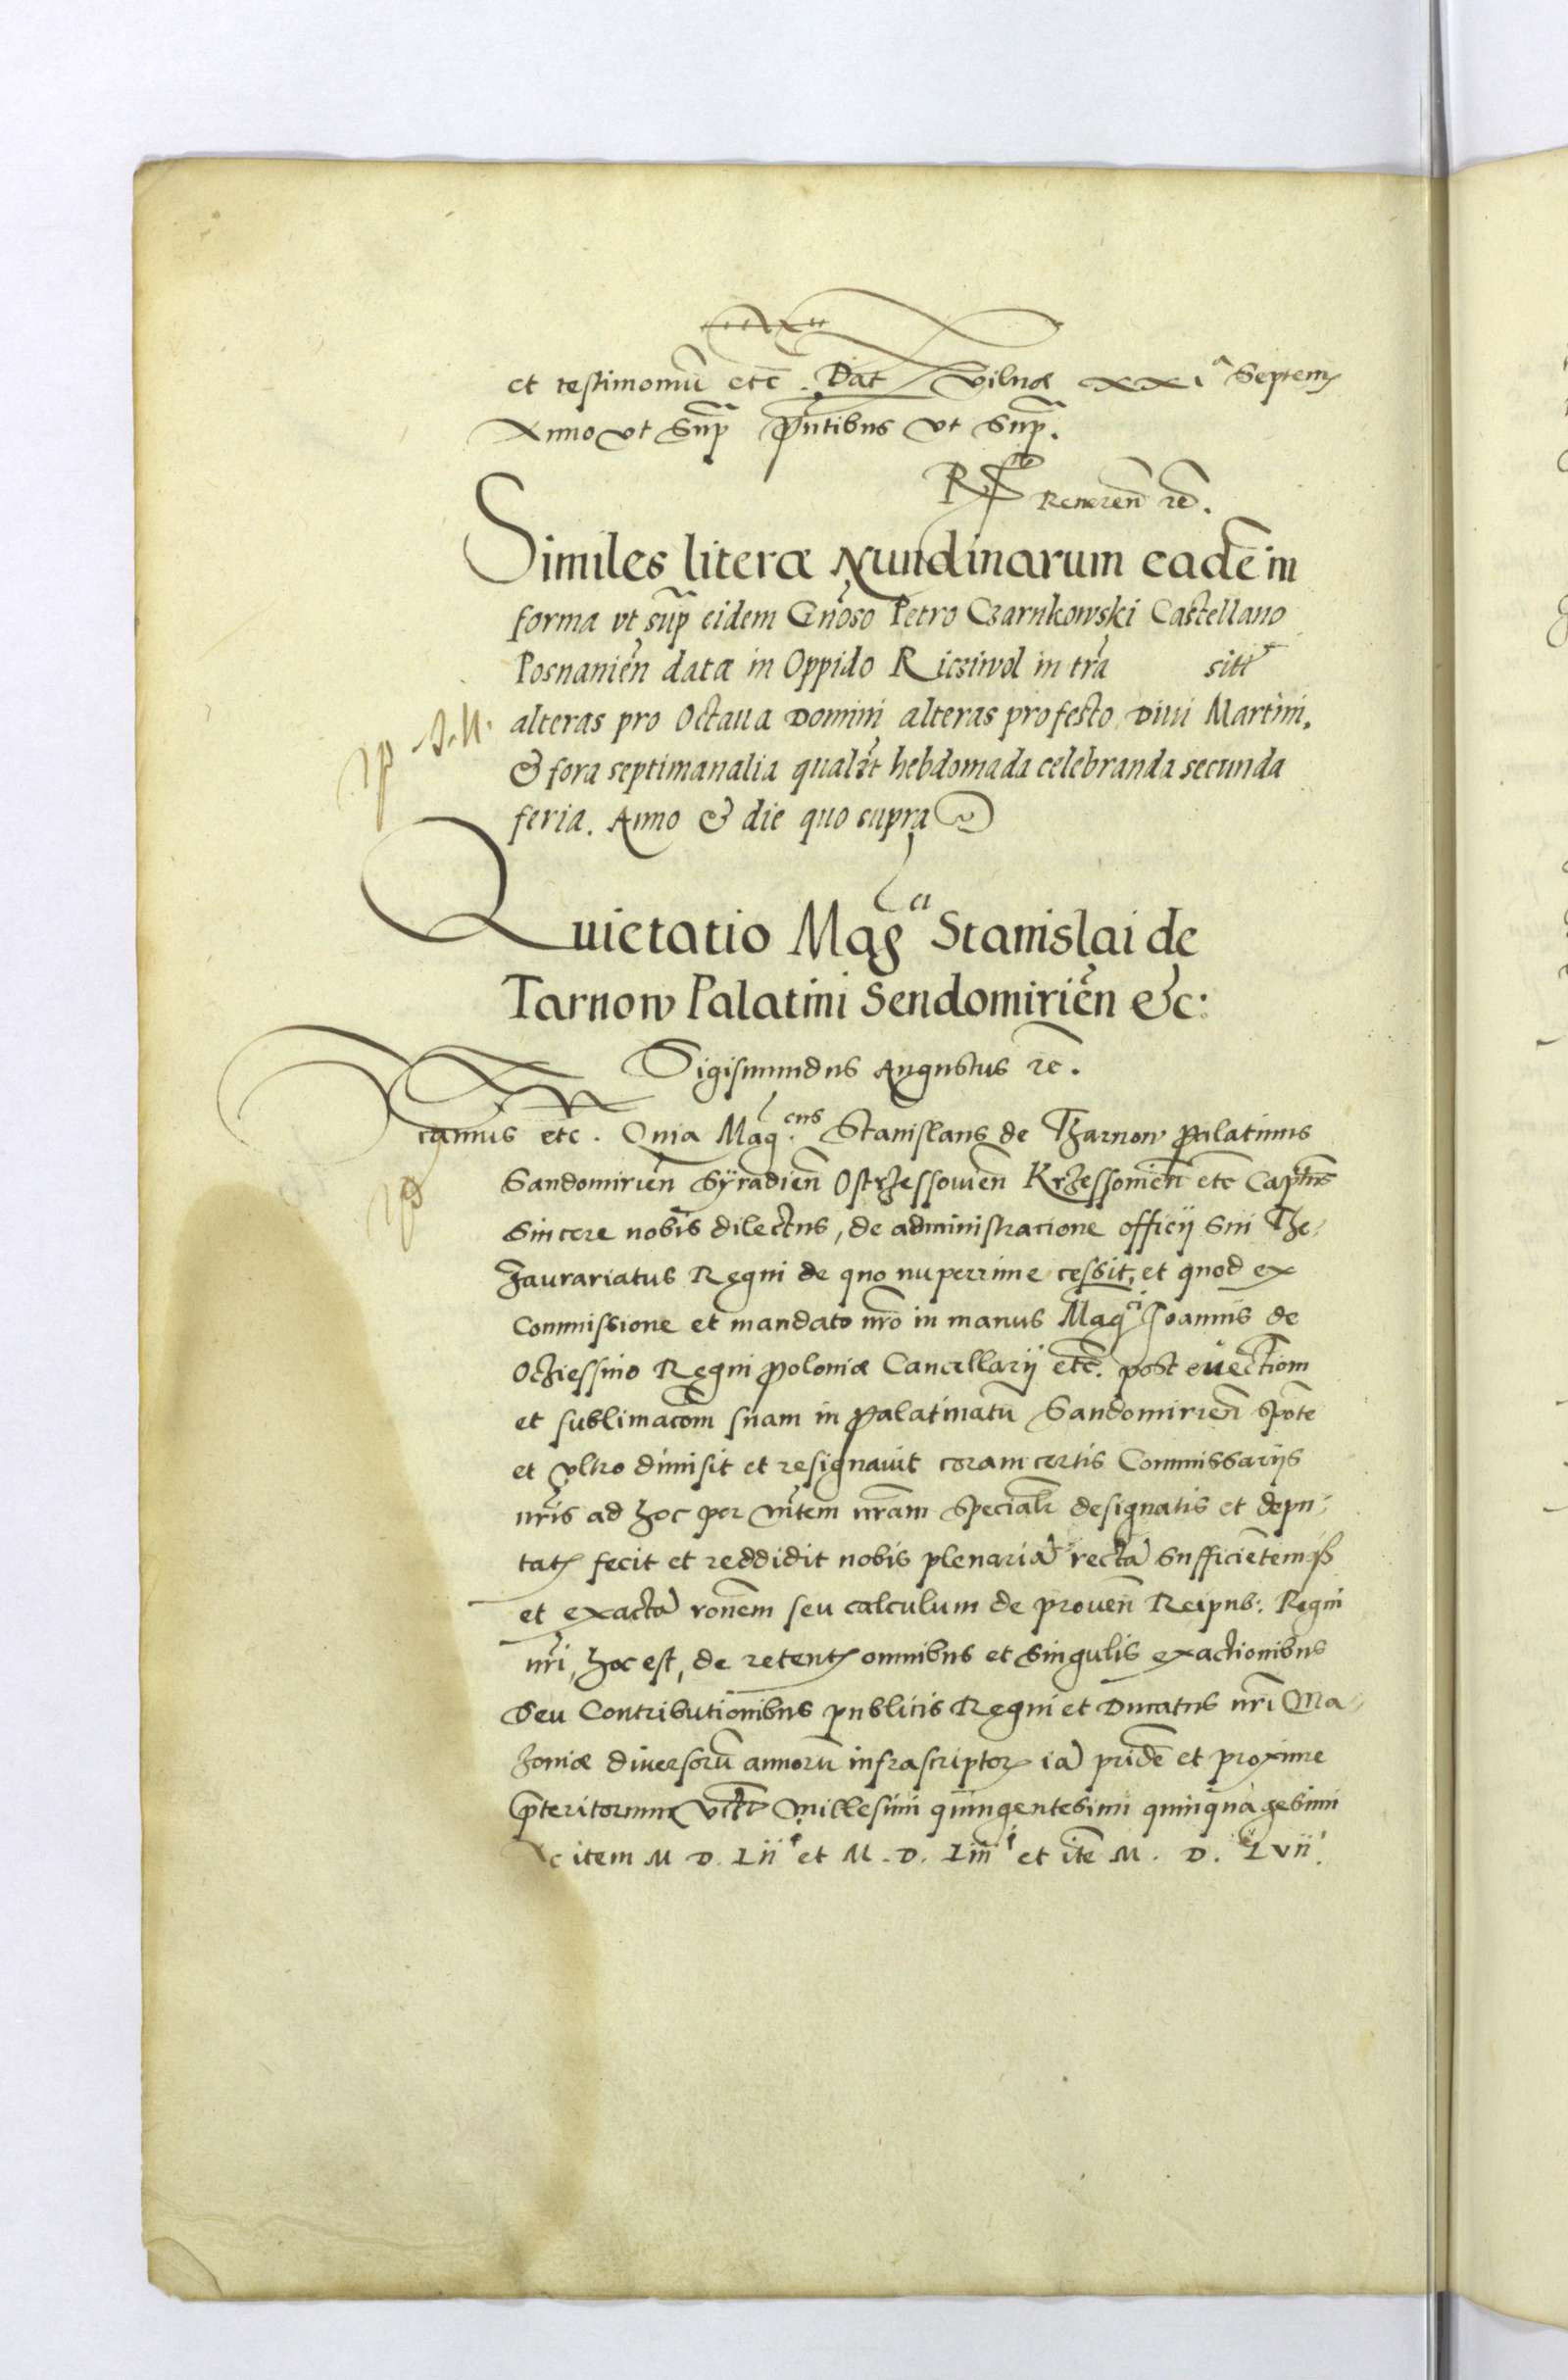 et testimoniū etc̄. Dat Vilnæ xxiª Septem
Anno vt Sup̄ p̄ntibus vt Sup̄.
Reueren̄ rē.
Similes literæ Nundinarum eadē in
forma vt sup̄ eidem Gn̄oso Petro Czarnkowski Castellano
Posnanien̄ datæ in Oppido Ricziwol in tr̄a sitī
alteras pro Octaua Domini alteras pro festo Diui Martini,
& fora septimanalia qualꝫt hebdomada celebranda secunda
feria. Anno & die quo supra
Quietatio Mag^ci Stanislai de
Tarnow Palatini Sendomirien̄ &c:
Sigismundus Augustus rc̄.
camus etc. Quia Mag^cus Stanislaus de Tharnow Palatinus
Sandomirien̄ Sÿradien̄ Ostrzessouien̄ Krzessouien̄ etc Capt̄ns
Sincere nobis dilectus, de administracione officij Sui The,
zaurariatus Regni de quo nuperrime cessit, et quod ex
Commissione et mandato nr̄o in manus Mag^ci Joannis de
Ocziessino Regni Poloniæ Cancellarij etc̄. post euectiom̄
et sublimacōm̄ suam in Palatinatū Sandomirien̄ spōte
et vltro dimisit et resignauit coram certis Commissarijs
nr̄is ad hoc per m̄tem nr̄am specialr̄ designatis et depu,
tatꝭ fecit et reddidit nobis plenariā rectā Sufficiētemqꝫ
et exactā ronem̄ seu calculum de prouen̄ Reipub: Regni
nr̄i, hoc est, de retentꝭ omnibus et Singulis exactionibus
Seu Contributionibus publicis Regni et Ducatus nr̄i Ma,
zouiæ diuersorū annorū infrascriptoꝝ iā pridē et proxime
p̄teritorum vct̄ Millesimi quingentesimi quinquagesimi
Ac item M D. Lii^i et M. D. Liii^i et itē M. D. Lvii^i.